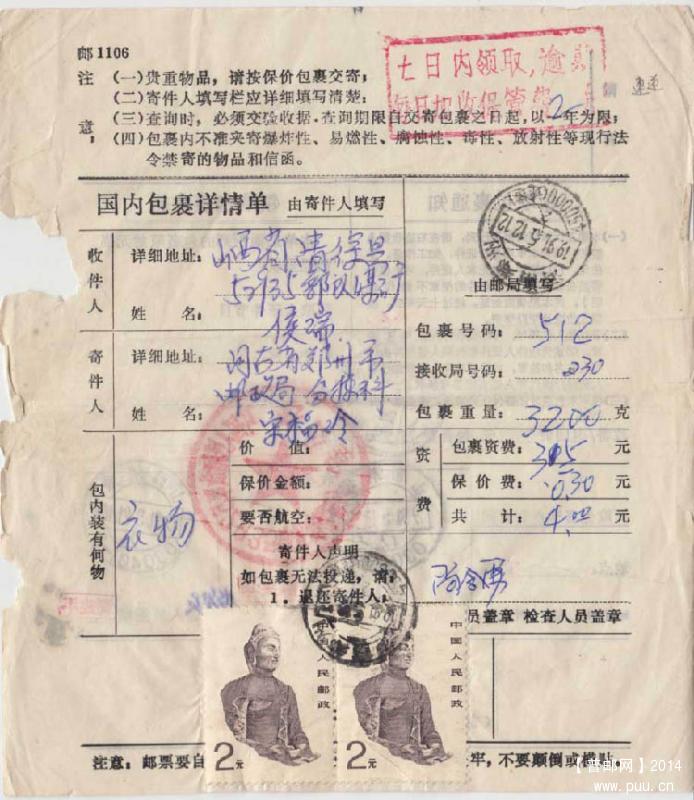 邮1106
七日内领取,逾期
每日加收保管费2
注意:
(一)贵重物品,请按保价包裹交寄;
(二)寄件人填写栏应详细填写清楚;
(三)查询时,必须交验收据。查询期限自交寄包裹之日起,以 年为限;
(四)包裹内不准夹寄爆炸性、易燃性、腐蚀性、毒性、放射性等现行法
令禁寄的物品和信函。
国内包裹详情单 由寄件人填写
收件人
详细地址:山西省清徐县
57935部队煤矿
姓名:侯瑞
寄件人
详细地址:河南省郑州市
邮政局分拣科
姓名:宋 玲
包内装有何物
衣物
价值:
保价金额:
要否航空:
寄件人声明
如包裹无法投递,请:
1.退还寄件人:
由邮局填写
包裹号码:512
接收局号码:030
包裹重量:3200克
资费
包裹资费: 元
保价费:0.30元
共计:4.00元
员盖章 检查人员盖章
中国人民邮政
2元
中国人民邮政
2元
注意:邮票要自
牢,不要颠倒或横贴
【普邮网】2014
www.puu.cn